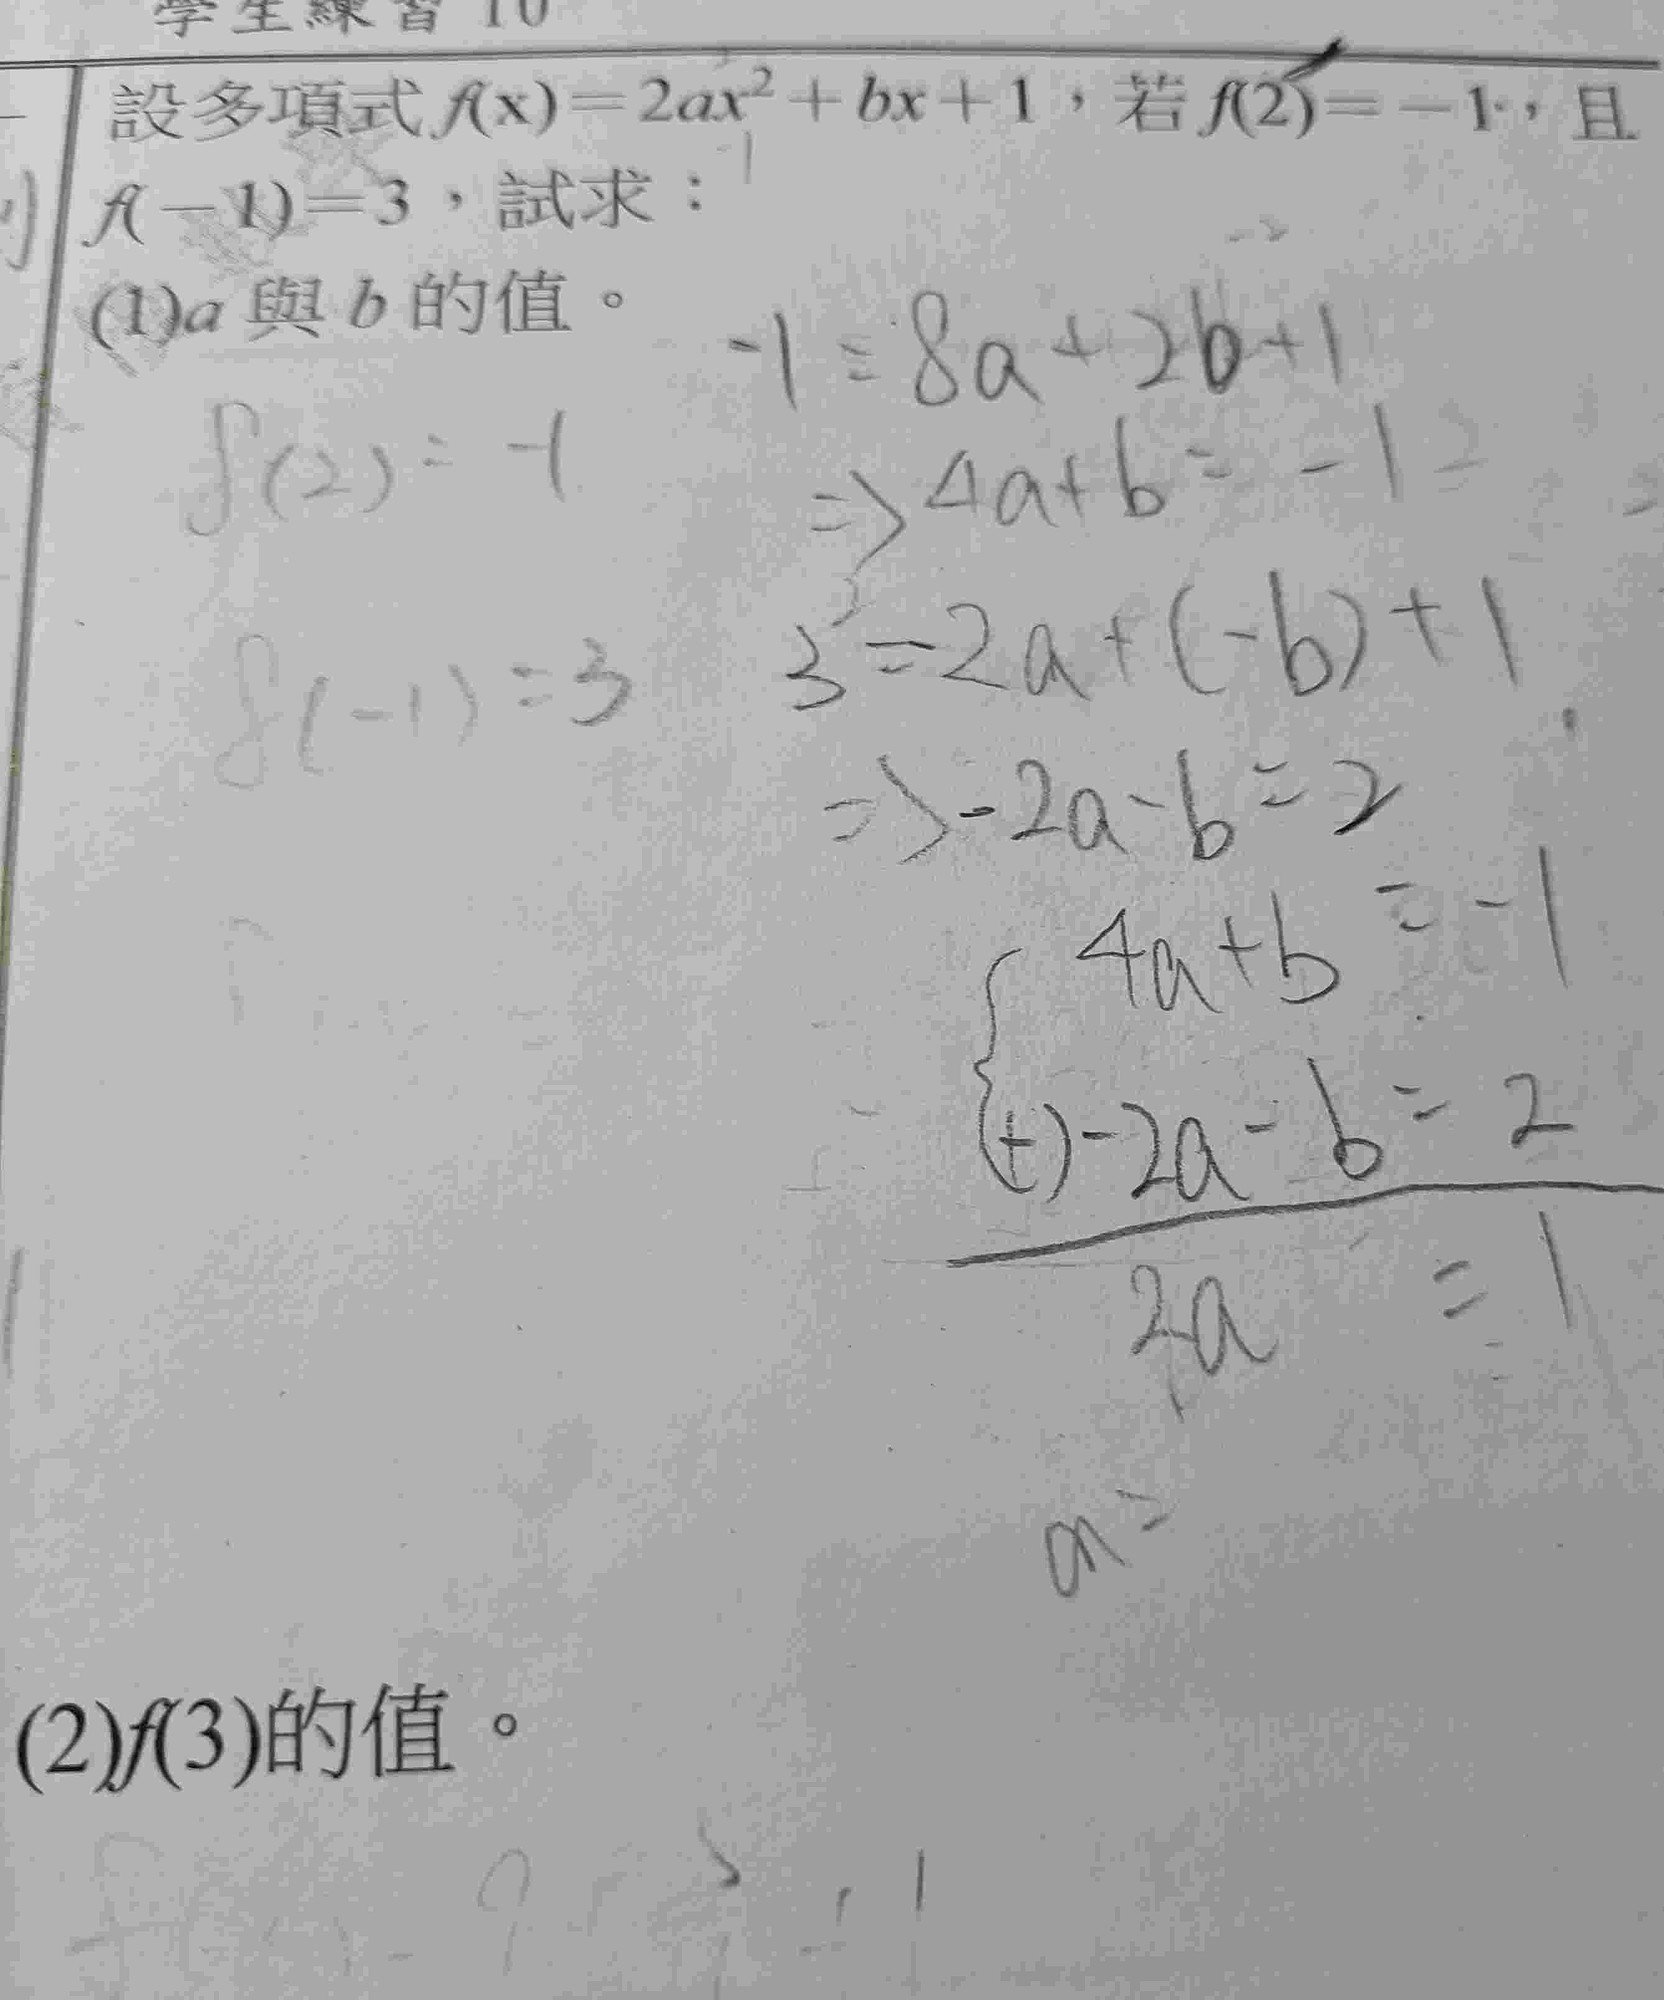 學生練習 10
設多項式 f(x)=2ax²+bx+1，若 f(2)=-1，且
f(-1)=3，試求：
(1)a 與 b 的值。
-1=8a+2b+1
f(2)=-1
=>4a+b=-1
f(-1)=3
3=2a+(-b)+1
=>-2a-b=2
4a+b=-1
(+)-2a-b=2
2a=1
a=
(2)f(3)的值。